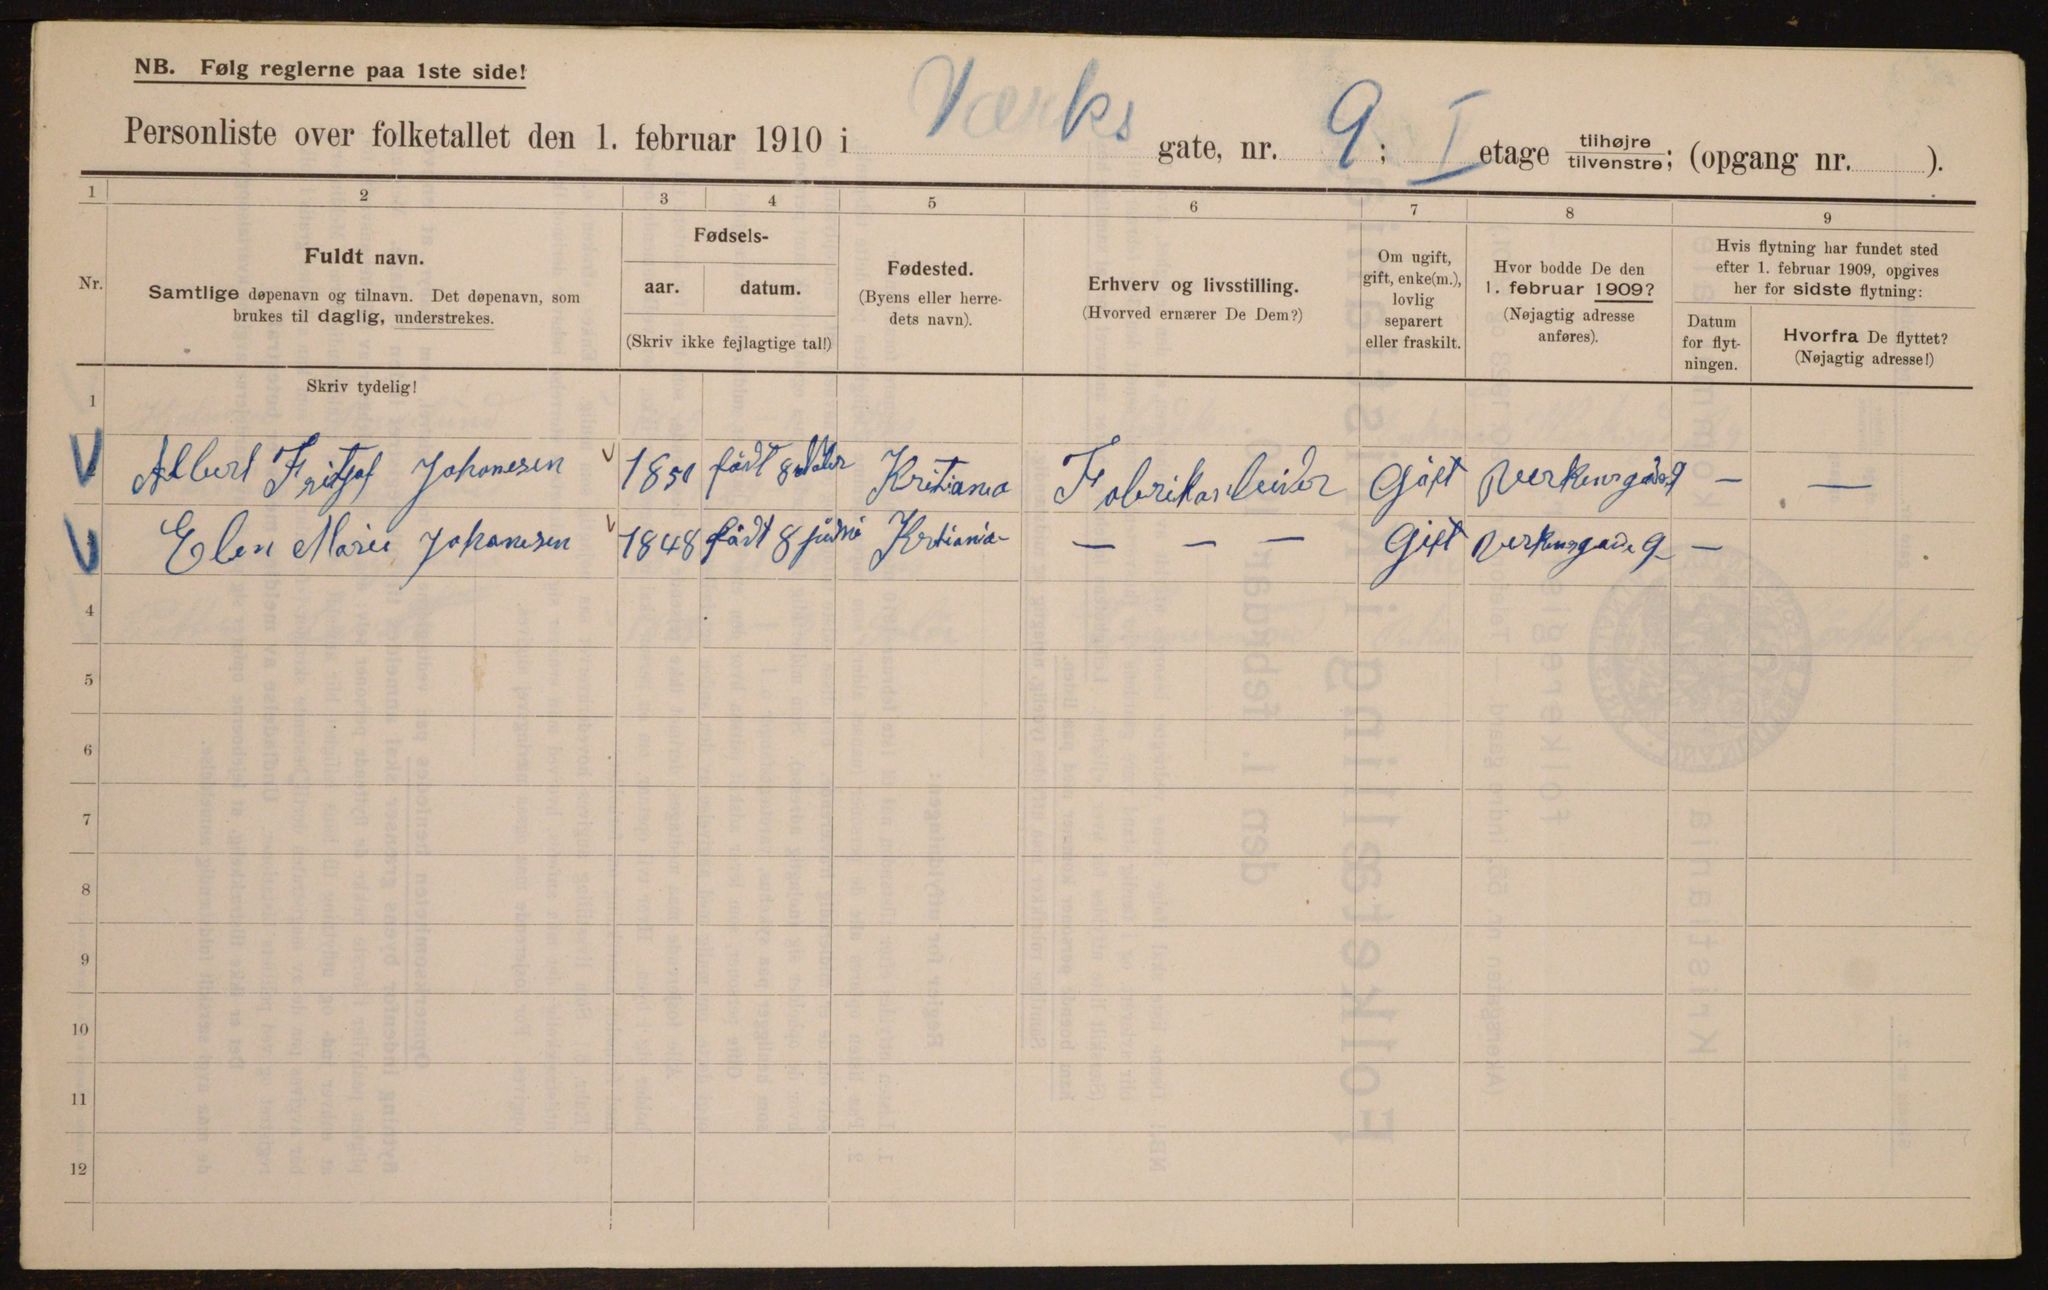 NB. Følg reglerne paa 1ste side!
Personliste over folketallet den 1. februar 1910 i Værks gate, nr. 9; I etage tilhøjre tilvenstre; (opgang nr. ).
1 2 3 4 5 6 7 8 9
Nr.
Fuldt navn.
Samtlige døpenavn og tilnavn. Det døpenavn, som
brukes til daglig, understrekes.
Fødsels-
aar. datum.
(Skriv ikke fejlagtige tal!)
Fødested.
(Byens eller herre-
dets navn).
Erhverv og livsstilling.
(Hvorved ernærer De Dem?)
Om ugift,
gift, enke(m.),
lovlig
separert
eller fraskilt.
Hvor bodde De den
1. februar 1909?
(Nøjagtig adresse
anføres).
Hvis flytning har fundet sted
efter 1. februar 1909, opgives
her for sidste flytning:
Datum
for flyt-
ningen.
Hvorfra De flyttet?
(Nøjagtig adresse!)
Skriv tydelig!
1
Albert Fritjof Johanesen 1850 født 8 Kritiania Fabrikarbeider Gift Verkensgade 9 — —
Elen Marie Johanesen 1848 født 8 juni Krtiania — — — Gift Verkensgade 9 —
4
5
6
7
8
9
10
11
12